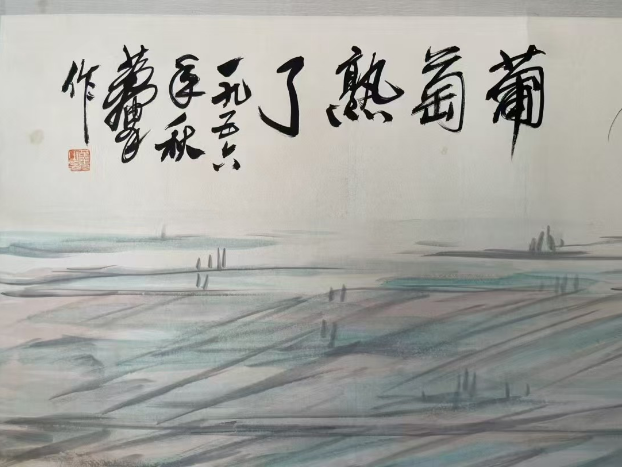 葡萄熟了
一九五六
年秋
黄胄
作